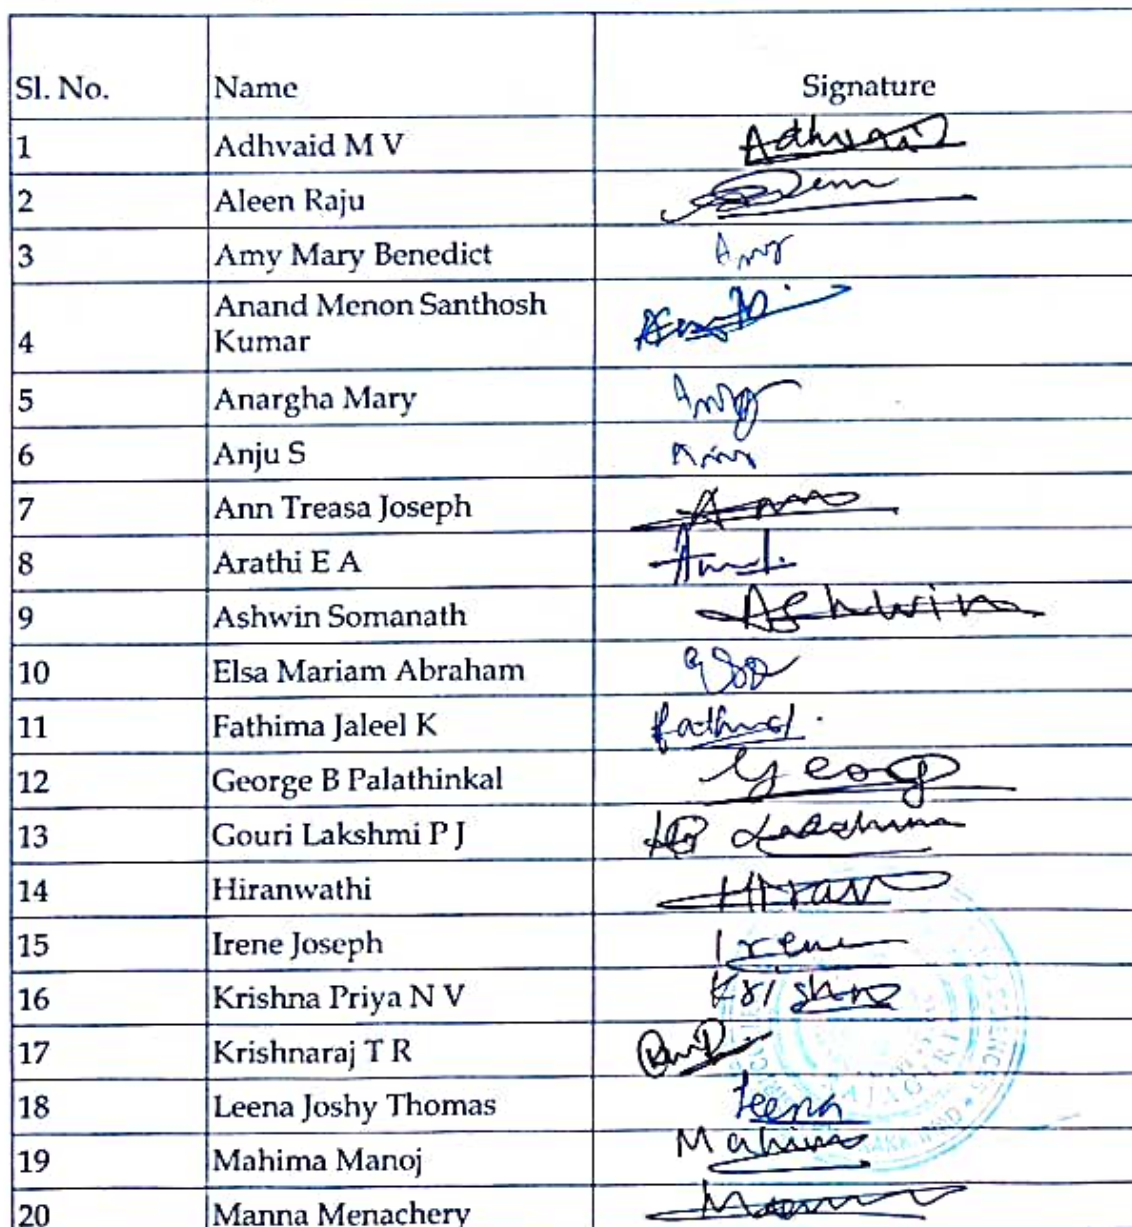 Sl. No. Name Signature
1 Adhvaid M V Adhvaid
2 Aleen Raju
3 Amy Mary Benedict Amy
Anand Menon Santhosh
4 Kumar
5 Anargha Mary
6 Anju S
7 Ann Treasa Joseph Ann
8 Arathi E A
9 Ashwin Somanath Ashwin
10 Elsa Mariam Abraham Elsa
11 Fathima Jaleel K
12 George B Palathinkal Georg
13 Gouri Lakshmi P J
14 Hiranwathi Hiran
15 Irene Joseph Irene
16 Krishna Priya N V Krishna
17 Krishnaraj T R
18 Leena Joshy Thomas Leena
19 Mahima Manoj Mahima
20 Manna Menachery